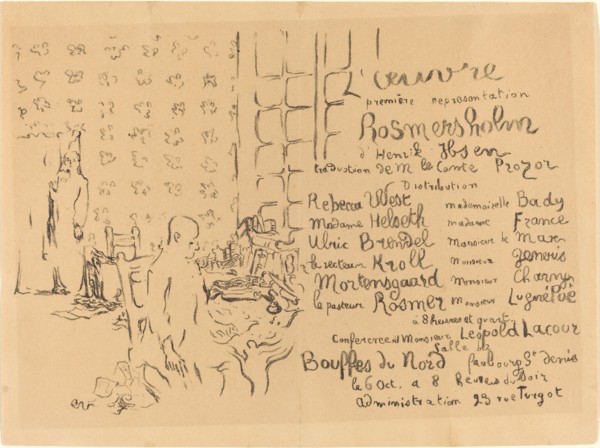 L'œuvre
première représentation
Rosmersholm
d'Henrik Ibsen
traduction de M le Comte Prozor
Distribution
Rebecca West mademoiselle Bady
Madame Helseth madame France
Ulric Brendel Monsieur de Max
le recteur Kroll Monsieur
Mortensgaard Monsieur Charny
le pasteur Rosmer Monsieur Lugné Poë
à 8 heures et quart
Conférence de Monsieur Léopold Lacour
Salle des
Bouffes du Nord faubourg St denis
le 6 Oct. a 8 heures du Soir
administration 23 rue Turgot